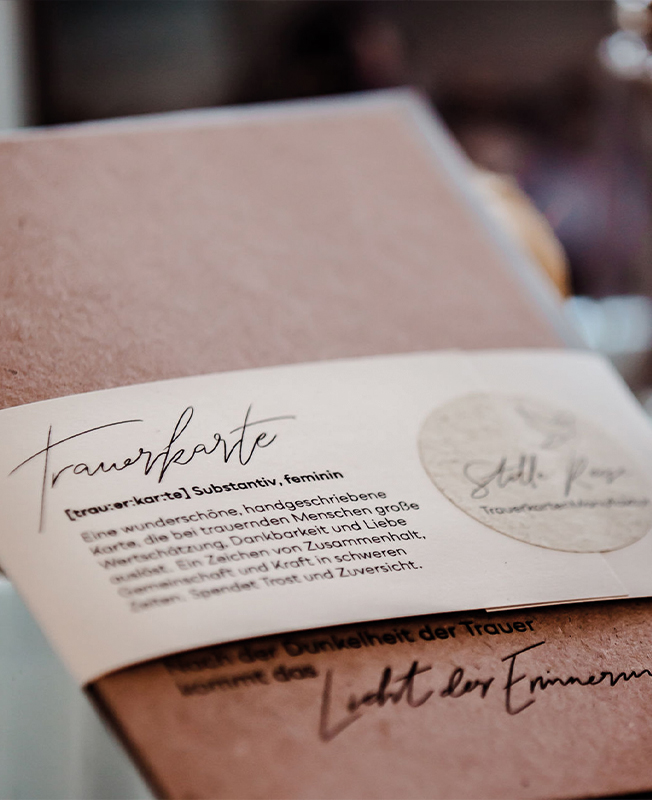 Trauerkarte
[trau:er:kar:te] Substantiv, feminin
Eine wunderschöne, handgeschriebene
Karte, die bei trauernden Menschen große
Wertschätzung, Dankbarkeit und Liebe
auslöst. Ein Zeichen von Zusammenhalt,
Gemeinschaft und Kraft in schweren
Zeiten. Spendet Trost und Zuversicht.
Stille Post
Nach der Dunkelheit der Trauer
kommt das
Licht der